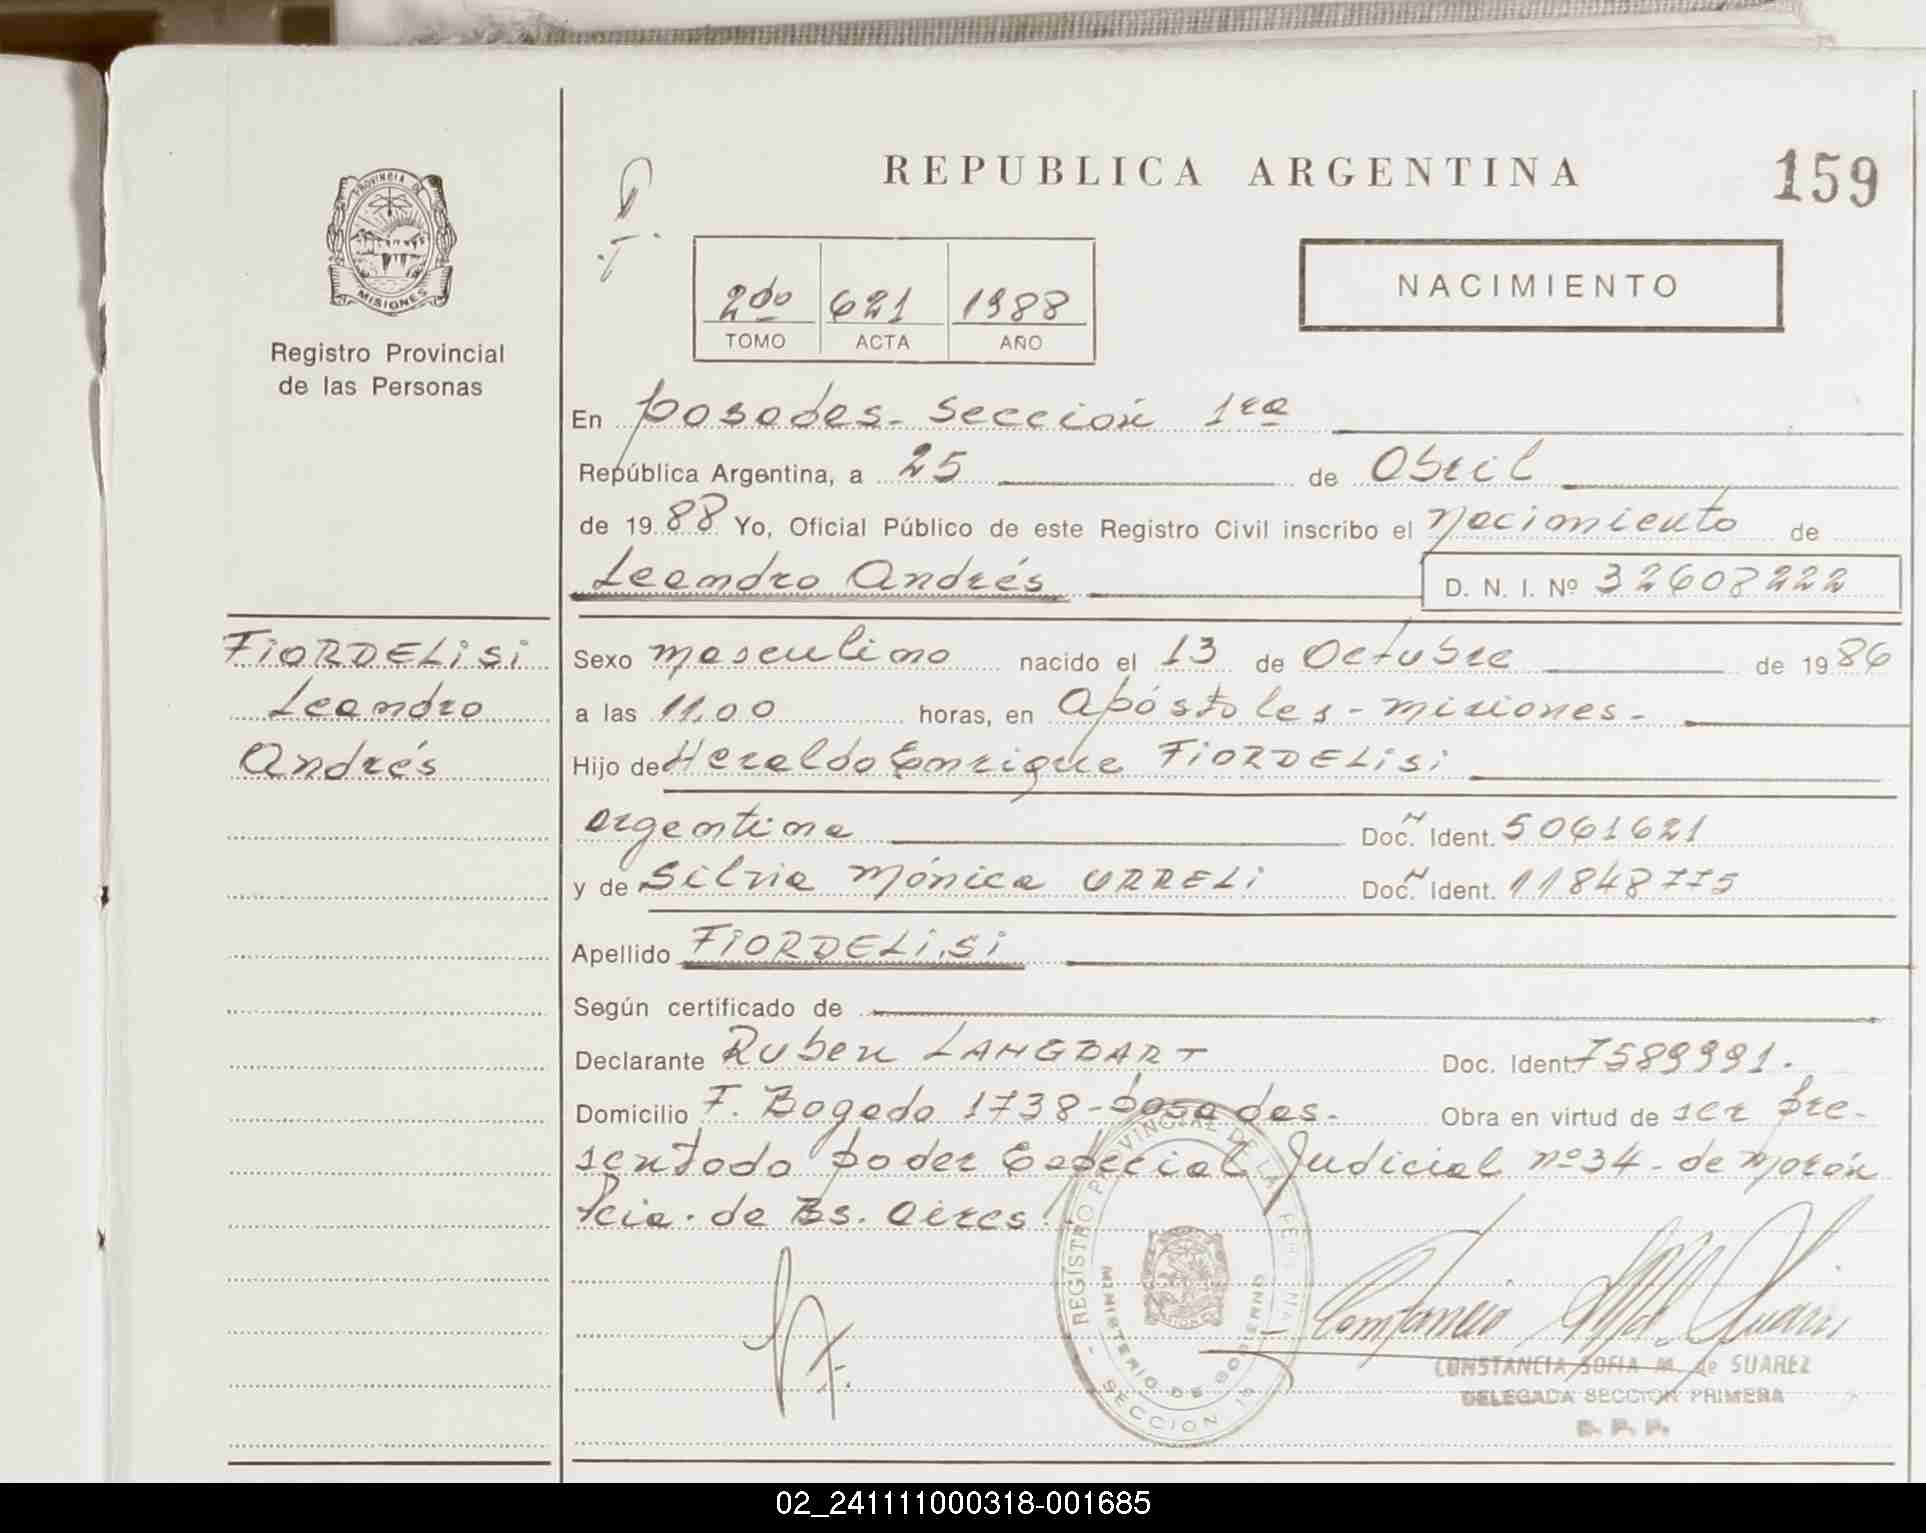 REPUBLICA ARGENTINA
159
PROVINCIA DE
MISIONES
Registro Provincial
de las Personas
2do 621 1988
TOMO ACTA AÑO
NACIMIENTO
En Posadas - Sección 1ra
República Argentina, a 25 de Abril
de 1988 Yo, Oficial Público de este Registro Civil inscribo el Nacimiento de
Leandro Andrés D. N. I. Nº 32608222
FIORDELISI
Leandro
Andrés
Sexo masculino nacido el 13 de Octubre de 1986
a las 11,00 horas, en Apóstoles - Misiones -
Hijo de Heraldo Enrique FIORDELISI
argentina Doc. Ident. 5061621
y de Silvia Mónica URRELI Doc. Ident. 11848775
Apellido FIORDELISI
Según certificado de
Declarante Ruben LANGBART Doc. Ident. 7589991.
Domicilio F. Bogado 1738 - Posadas - Obra en virtud de ser pre-
sentado poder Especial Judicial nº 34 - de Morón
Pcia. de Bs. Aires.
REGISTRO PROVINCIAL DE LA
MINISTERIO DE GOBIERNO
SECCION 1ª
CONSTANCIA SOFIA M. de SUAREZ
DELEGADA SECCION PRIMERA
02_241111000318-001685